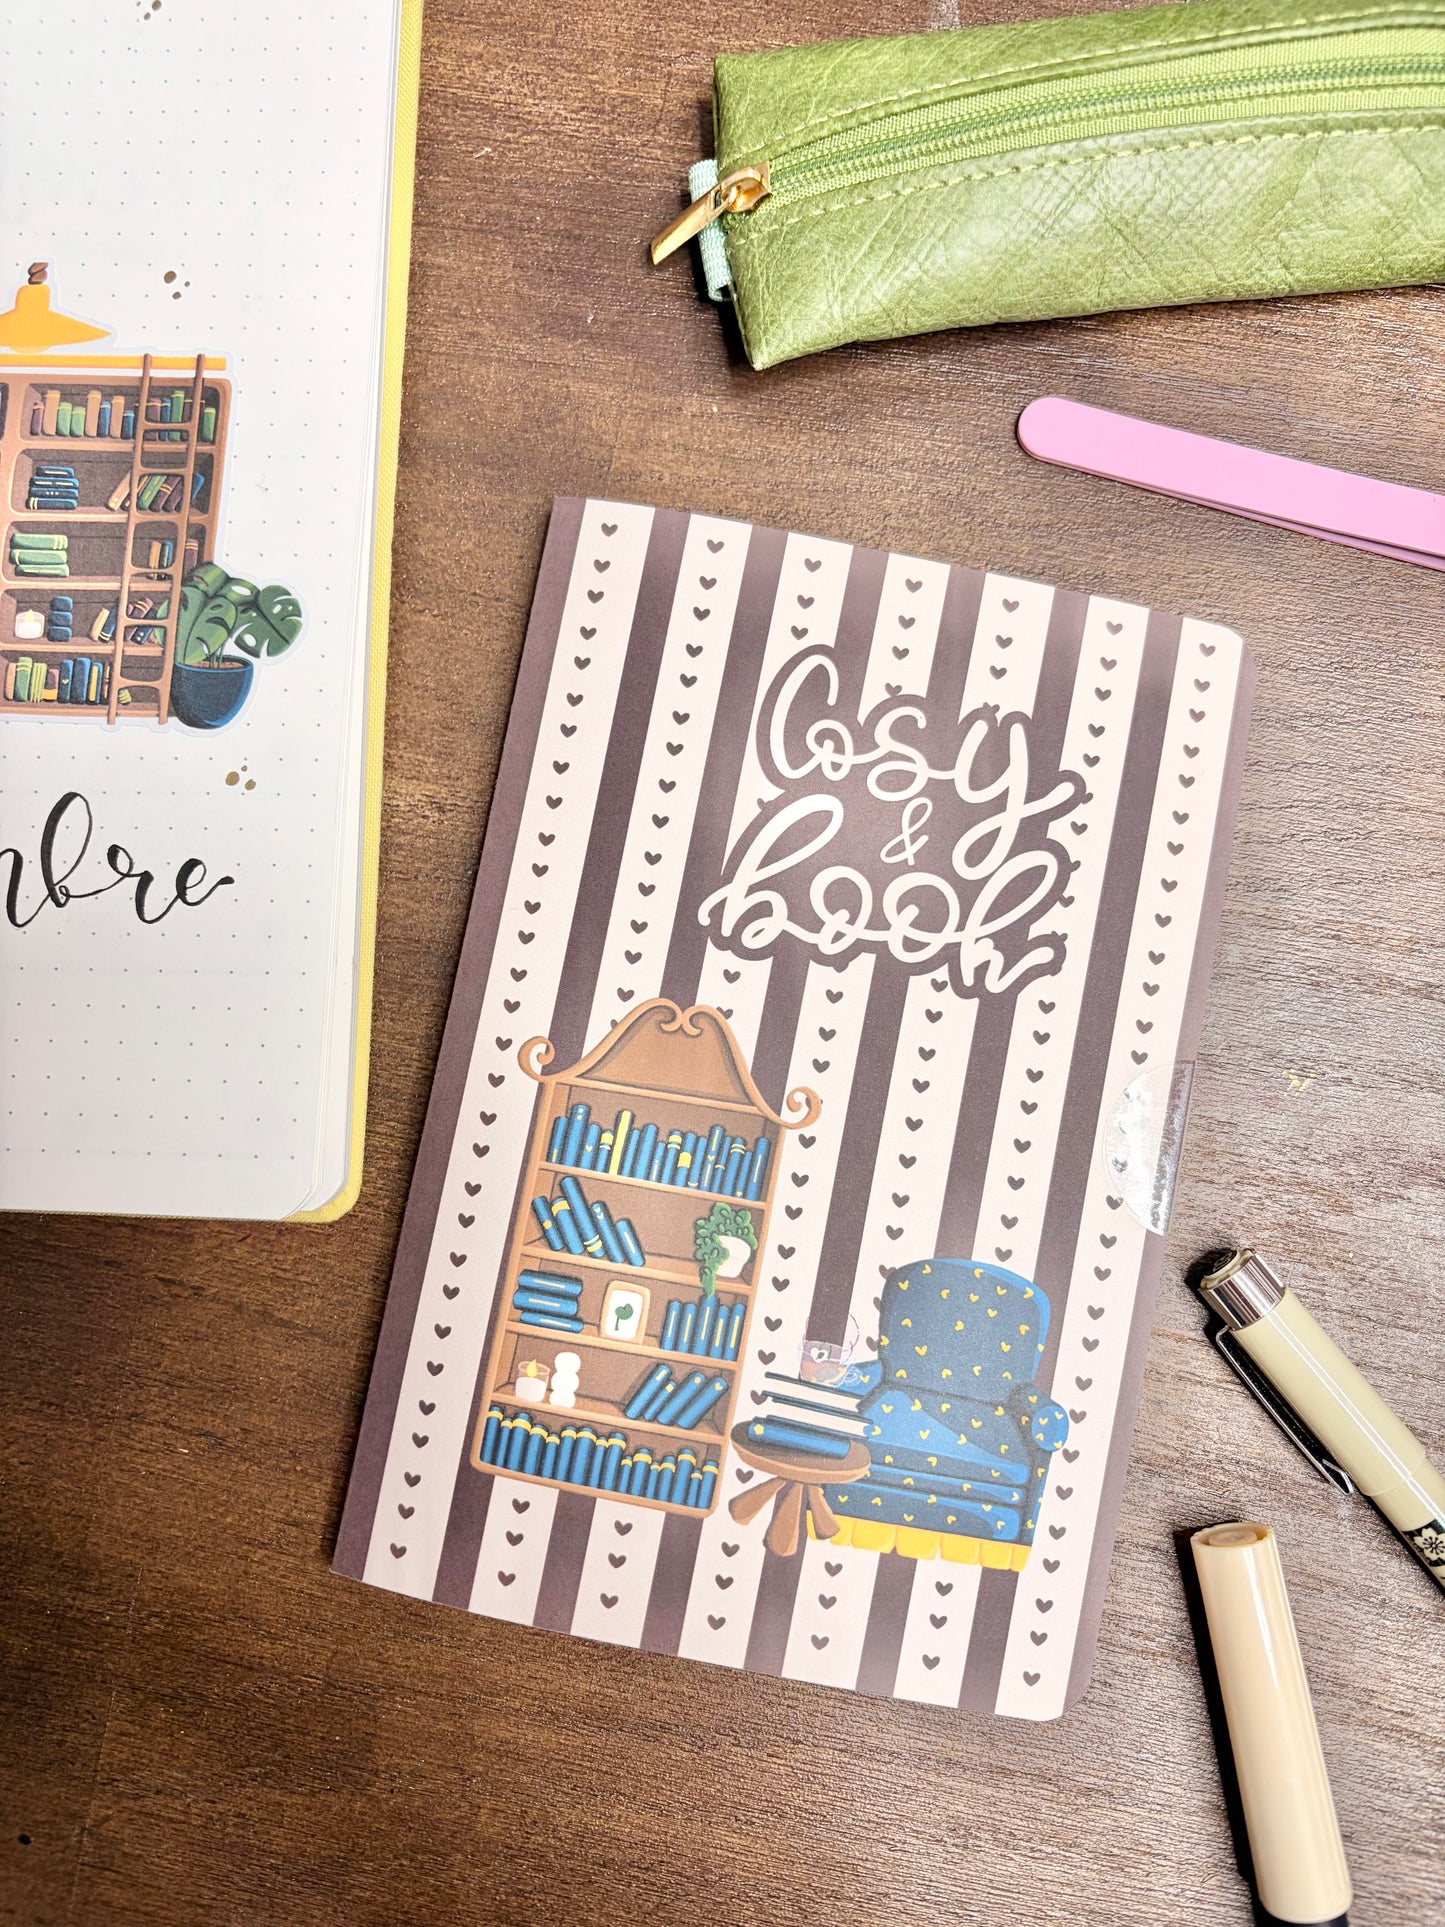 mbre
Cosy
&
book